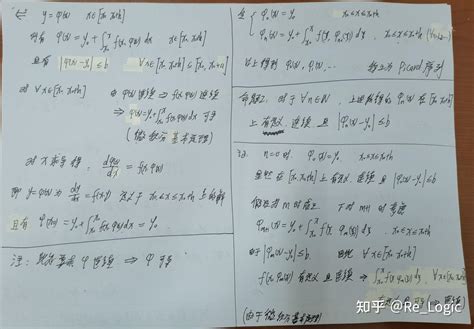 "⇐" y = φ(x) x∈[x₀, x₀+h]
则有 φ(x) = y₀ + ∫_{x₀}^{x} f(x, φ(x)) dx x∈[x₀, x₀+h]
且有 |φ(x) - y₀| ≤ b ∀x∈[x₀, x₀+h] ⊆ [x₀, x₀+a]
对 x∈[x₀, x₀+h] 由 φ(x) 连续 ⇒ f(x, φ(x)) 连续
⇒ φ(x) = y₀ + ∫_{x₀}^{x} f(x, φ(x)) dx 可导
(微积分基本定理)
对 x 求导得, dφ(x)/dx = f(x, φ(x))
即 y = φ(x) 为 dy/dx = f(x, y) 定义于 x₀≤x≤x₀+h 上的解
且有 φ(x₀) = y₀ + ∫_{x₀}^{x₀} f(x, φ(x)) dx = y₀
注: φ 连续 ⇒ φ 可导
φ₀(x) = y₀ x₀≤x≤x₀+h
φₙ(x) = y₀ + ∫_{x₀}^{x} f(x, φₙ₋₁(x)) dx, x₀≤x≤x₀+h
以上得到 φ₀(x), φ₁(x), ... 称之为 Picard 序列
命题2. 对于 ∀n∈N, 上述所得的 φₙ(x) 在 [x₀, x₀+h]
上有定义、连续且 |φₙ(x) - y₀| ≤ b
证. n=0 时. φ₀(x) = y₀ x₀≤x≤x₀+h
显然在 [x₀, x₀+h] 上有定义、连续且 |φ₀(x) - y₀| ≤ b
假设对 m 时成立 下对 m+1 时考虑
φₘ₊₁(x) = y₀ + ∫_{x₀}^{x} f(x, φₘ(x)) dx x₀≤x≤x₀+h
由于 |φₘ(x) - y₀| ≤ b ∀x∈[x₀, x₀+h]
f(x, φₘ(x)) 有定义且连续 ⇒ ∫_{x₀}^{x} f(x, φₘ(x)) dx, ∀x∈[x₀, x₀+h]
有定义 ⇒ 可导
(由于微积分基本定理)
知乎 @Re_Logic